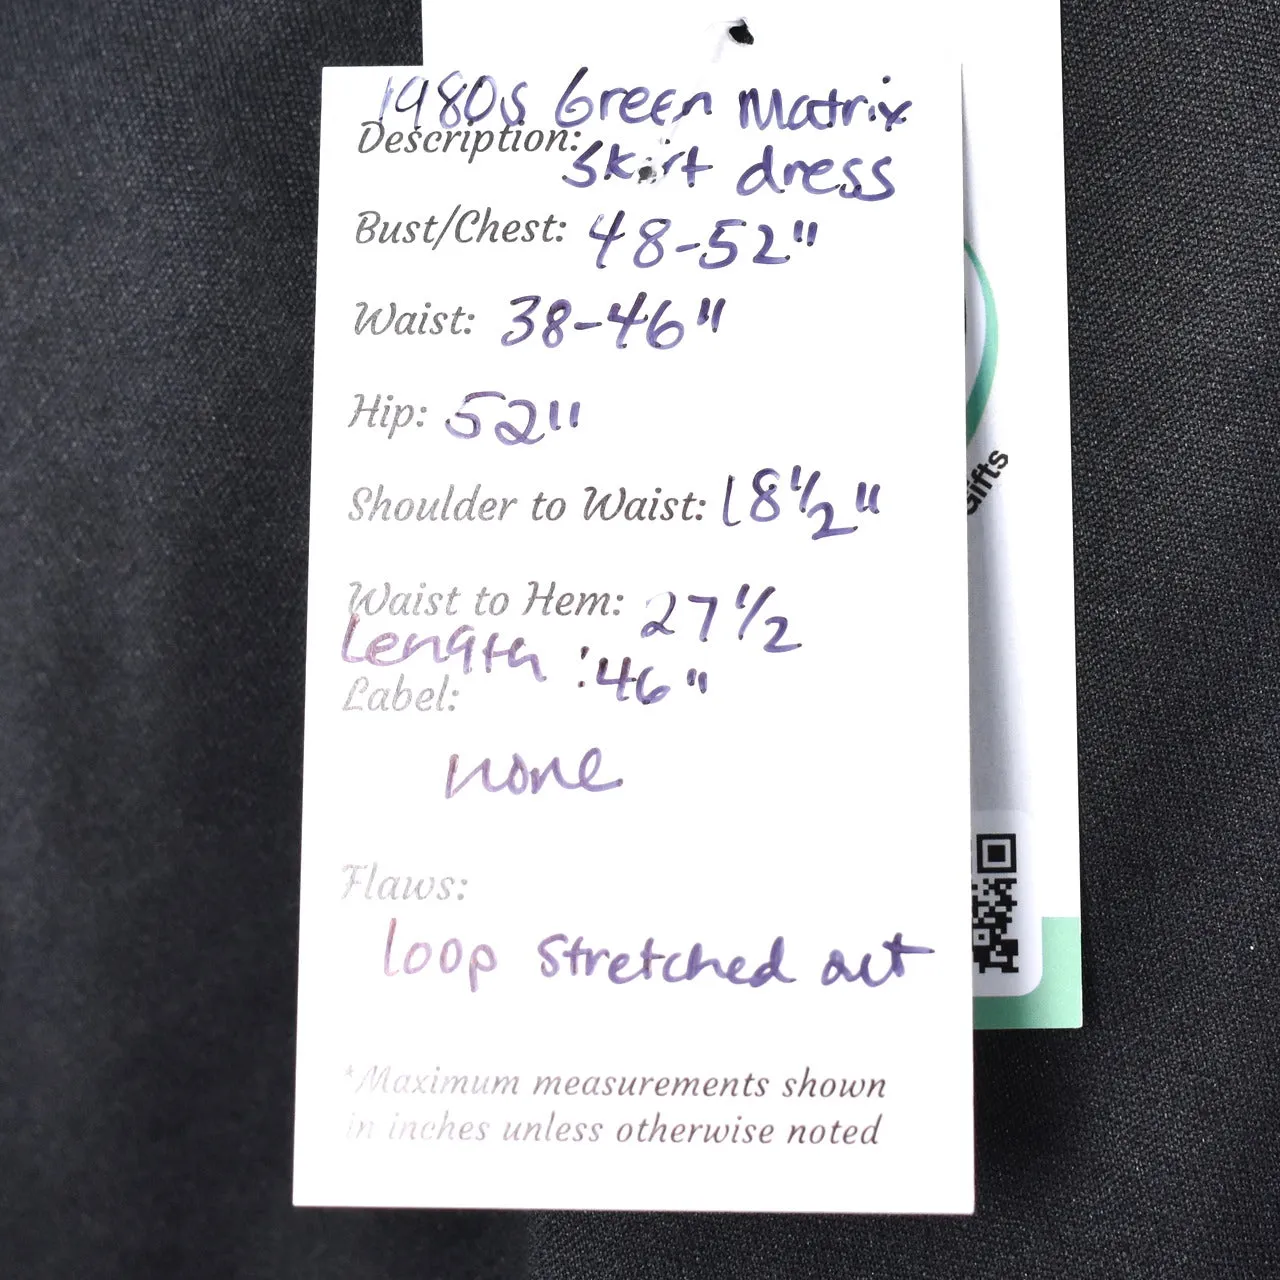 1980s Green Matrix
Description: Skirt dress
Bust/Chest: 48-52"
Waist: 38-46"
Hip: 52"
Shoulder to Waist: 18 1/2"
Waist to Hem: 27 1/2
Length: 46"
Label:
none
Flaws:
loop stretched out
*Maximum measurements shown
in inches unless otherwise noted
Gifts